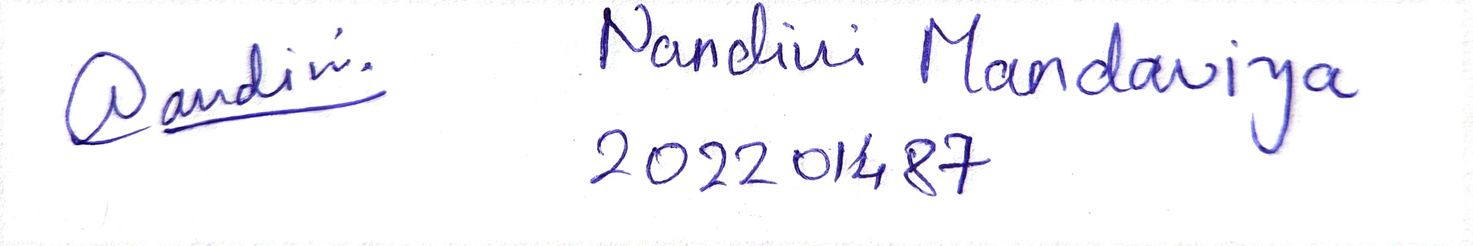 Nandini.
Nandini Mandaviya
202201487